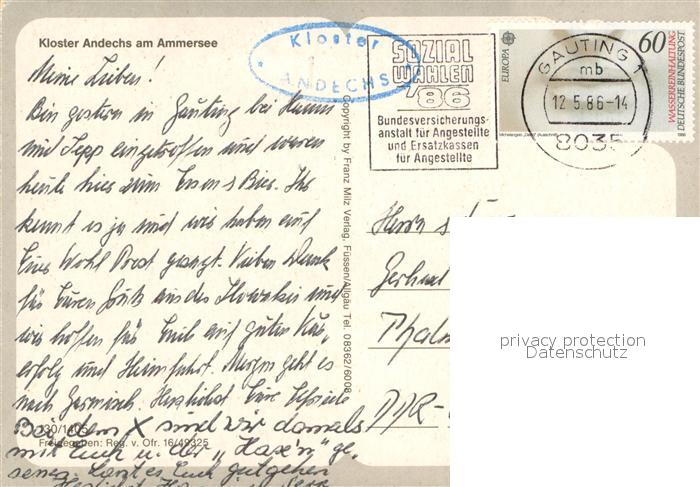 Kloster Andechs am Ammersee
Kloster
ANDECHS
SOZIAL
WAHLEN
/86
Bundesversicherungs-
anstalt für Angestellte
und Ersatzkassen
für Angestellte
EUROPA
60
WASSERREINHALTUNG
DEUTSCHE BUNDESPOST
GAUTING 1
mb
12.5.86-14
8035
Meine Lieben!
Bin gestern in Gauting bei
und Sepp eingetroffen und waren
heute hier zum Essen + Bier. Ihr
kennt es ja und wir haben auf
Euer Wohl Prost gesagt. Vielen Dank
für Euren Gruß aus der und
wir hoffen für Emil auf guten Kur-
erfolg und Heimfahrt. Morgen geht es
nach Garmisch. Herzlichst Eure
Bei dem X sind wir damals
mit Euch u. der „Haxe'n" ge-
sessen. Laszt es Euch gutgehen
Herzlichst
Copyright by Franz Milz Verlag, Füssen/Allgäu Tel. 08362/6008
Freigegeben: Reg. v. Ofr. 16/49325
Herrn
Gerhard
DDR-
privacy protection
Datenschutz